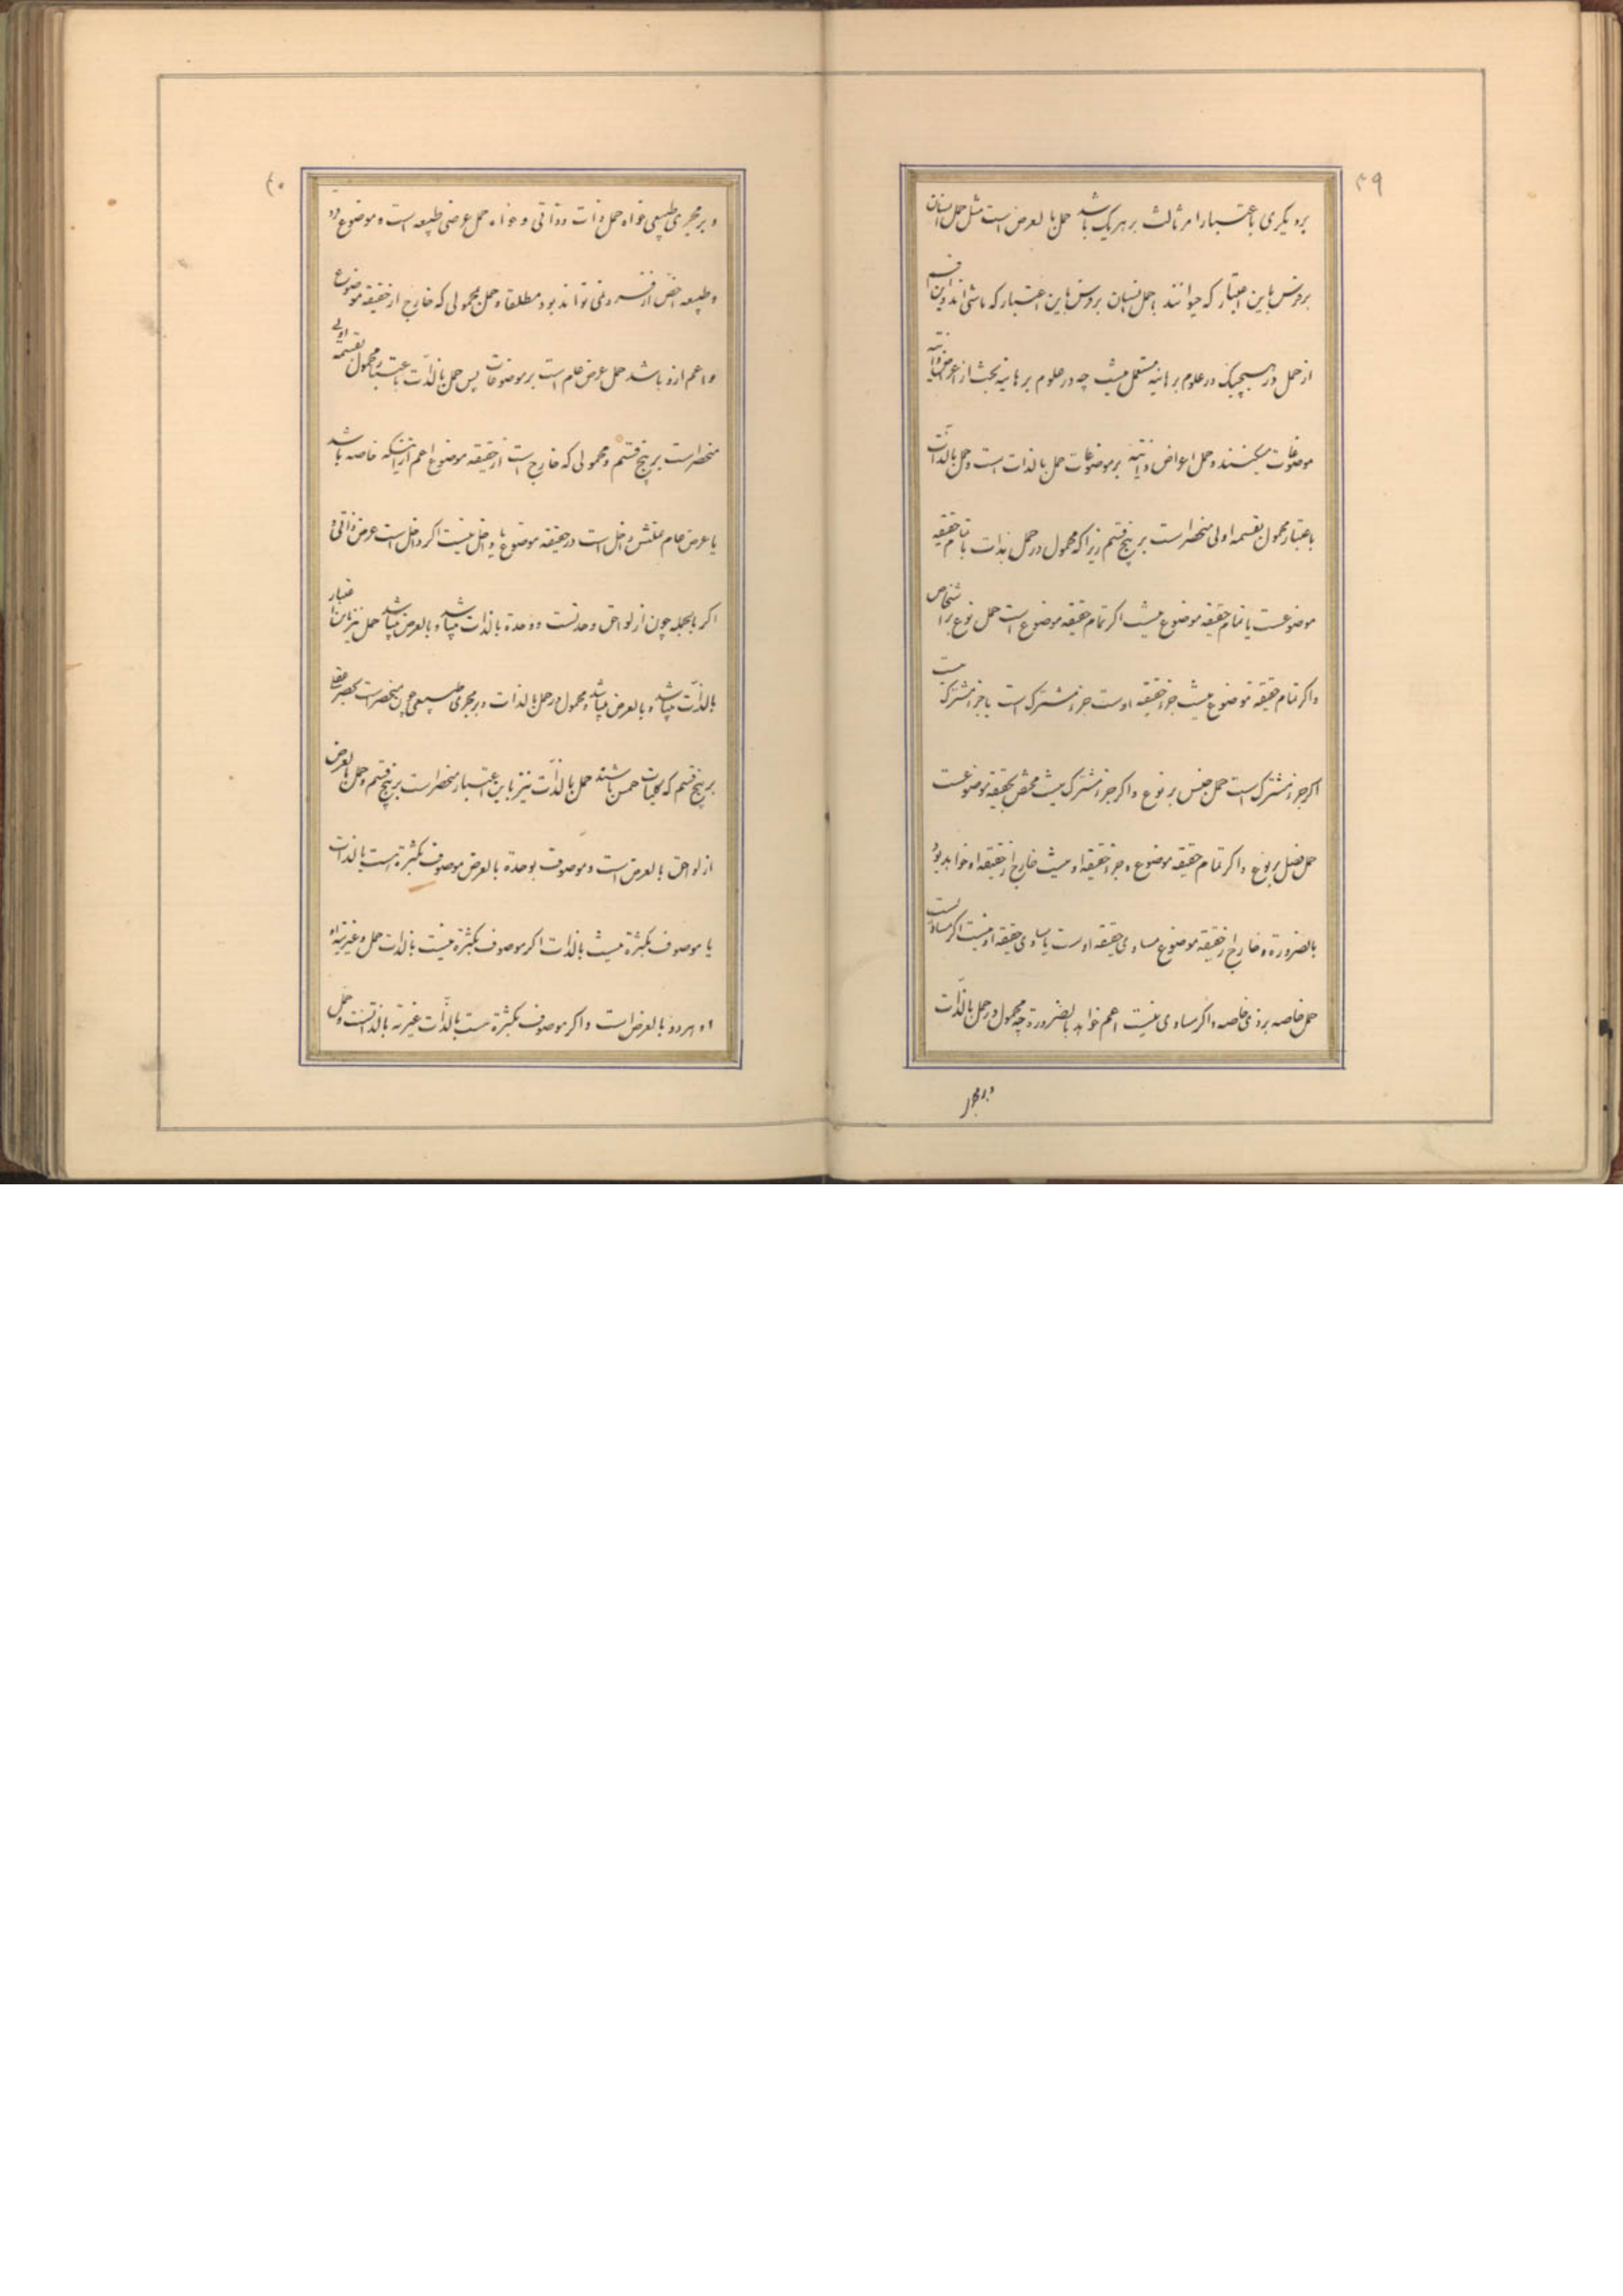 ۳۹
بردیکری باعتبار امر ثالث بر هر یک باشد حمل بالعرض است مثل حمل انسان
بر فرس باین اعتبار که حیوانند یا حمل انسان بر فرس باین اعتبار که ماشی اند و این قسم
از حمل در هیچیک در علوم برهانیه مستعمل نیست چه در علوم برهانیه بحث از اعراض ذاتیه
موضوعات میکنند و حمل اعراض ذاتیه بر موضوعات حمل بالذات است و حمل بالذات
باعتبار محمول بقسمه اولی منحصر است بر پنج قسم زیرا که محمول در حمل بذات یا تمام حقیقه
موضوعست یا تمام حقیقه موضوع نیست اکر تمام حقیقه موضوع است حمل نوع بر اشخاص
و اکر تمام حقیقه موضوع نیست جزء حقیقه اوست جزء مشترک است یا جزء مشترک نیست
اکر جزء مشترک است حمل جنس بر نوع و اکر جزء مشترک نیست مختص بحقیقه موضوعست
حمل فصل بر نوع و اکر تمام حقیقه موضوع و جزء حقیقه او نیست خارج از حقیقه او خواهد بود
بالضرورة و خارج از حقیقه موضوع مساوی حقیقه اوست یا مساوی حقیقه او نیست اکر مساویست
حمل خاصه بر ذی خاصه و اکر مساوی نیست اعم خواهد بالضرورة چه محمول در حمل بالذات
و بر مجر
۴۰
و بر مجری طبیعی خواه حمل ذات و ذاتی و خواه حمل عرضی طبیعه است و موضوع فرد
و طبیعه اخص از فرد نمی تواند بود مطلقا و حمل محمولی که خارج از حقیقه موضوع
و اعم ازو باشد حمل عرض عام است بر موضوعات پس حمل بالذات باعتبار محمول بقسمه اولی
منحصر است بر پنج قسم و محمولی که خارج است از حقیقه موضوع اعم از اینکه خاصه باشد
یا عرض عام داخل است در حقیقه موضوع یا داخل نیست اکر داخل است عرض ذاتی و
اکر بالجمله چون از لواحق وحدتست و وحدة بالذات میباشد و بالعرض میباشد حمل نیز باین اعتبار
بالذات میباشد و بالعرض میباشد و محمول در حمل بالذات و بر مجری طبیعی چون منحصر است بحصر عقلی
بر پنج قسم که کلیات خمس باشند حمل بالذات نیز باین اعتبار منحصر است بر پنج قسم و حمل بالعرض
از لواحق بالعرض است و موصوف بوحدة بالعرض موصوف بکثرة است بالذات
یا موصوف بکثرة نیست بالذات اکر موصوف بکثرة نیست بالذات حمل و غیریة او
او هر دو بالعرض است و اکر موصوف بکثرة است بالذات غیریة بالذاتست و حمل